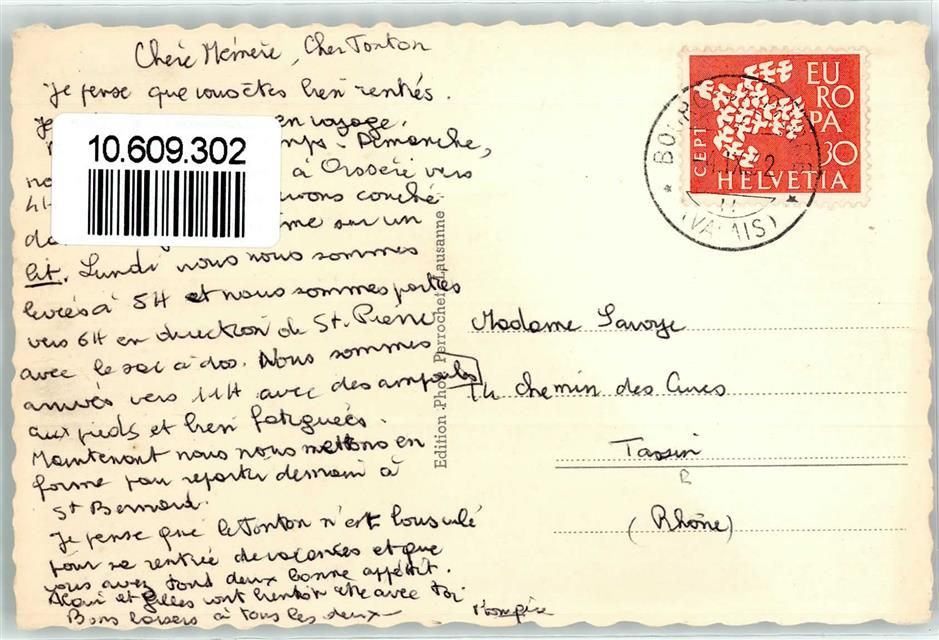 Chère Mémère, Cher Tonton
Je pense que vous êtes bien rentrés.
Je en voyage.
10.609.302
Dimanche,
à Orsière vers
avons couché
sur un
lit. Lundi nous nous sommes
levées à 5H et nous sommes parties
vers 6H en direction de St. Pierre
avec le sac à dos. Nous sommes
arrivés vers 11H avec des ampoules
aux pieds et bien fatiguées.
Maintenant nous nous mettons en
forme pour repartir demain à
St Bernard.
Je pense que le Tonton n'est bousculé
pour sa rentrée de vacances et que
vous avez tout deux bonne appétit.
et Gilles vont bientôt être avec toi
Bons baisers à tous les deux
Edition Photo Perrochet Lausanne
CEPT
EUROPA
30
HELVETIA
(VALAIS)
Madame Savoye
14 chemin des Cures
Tassin
(Rhône)